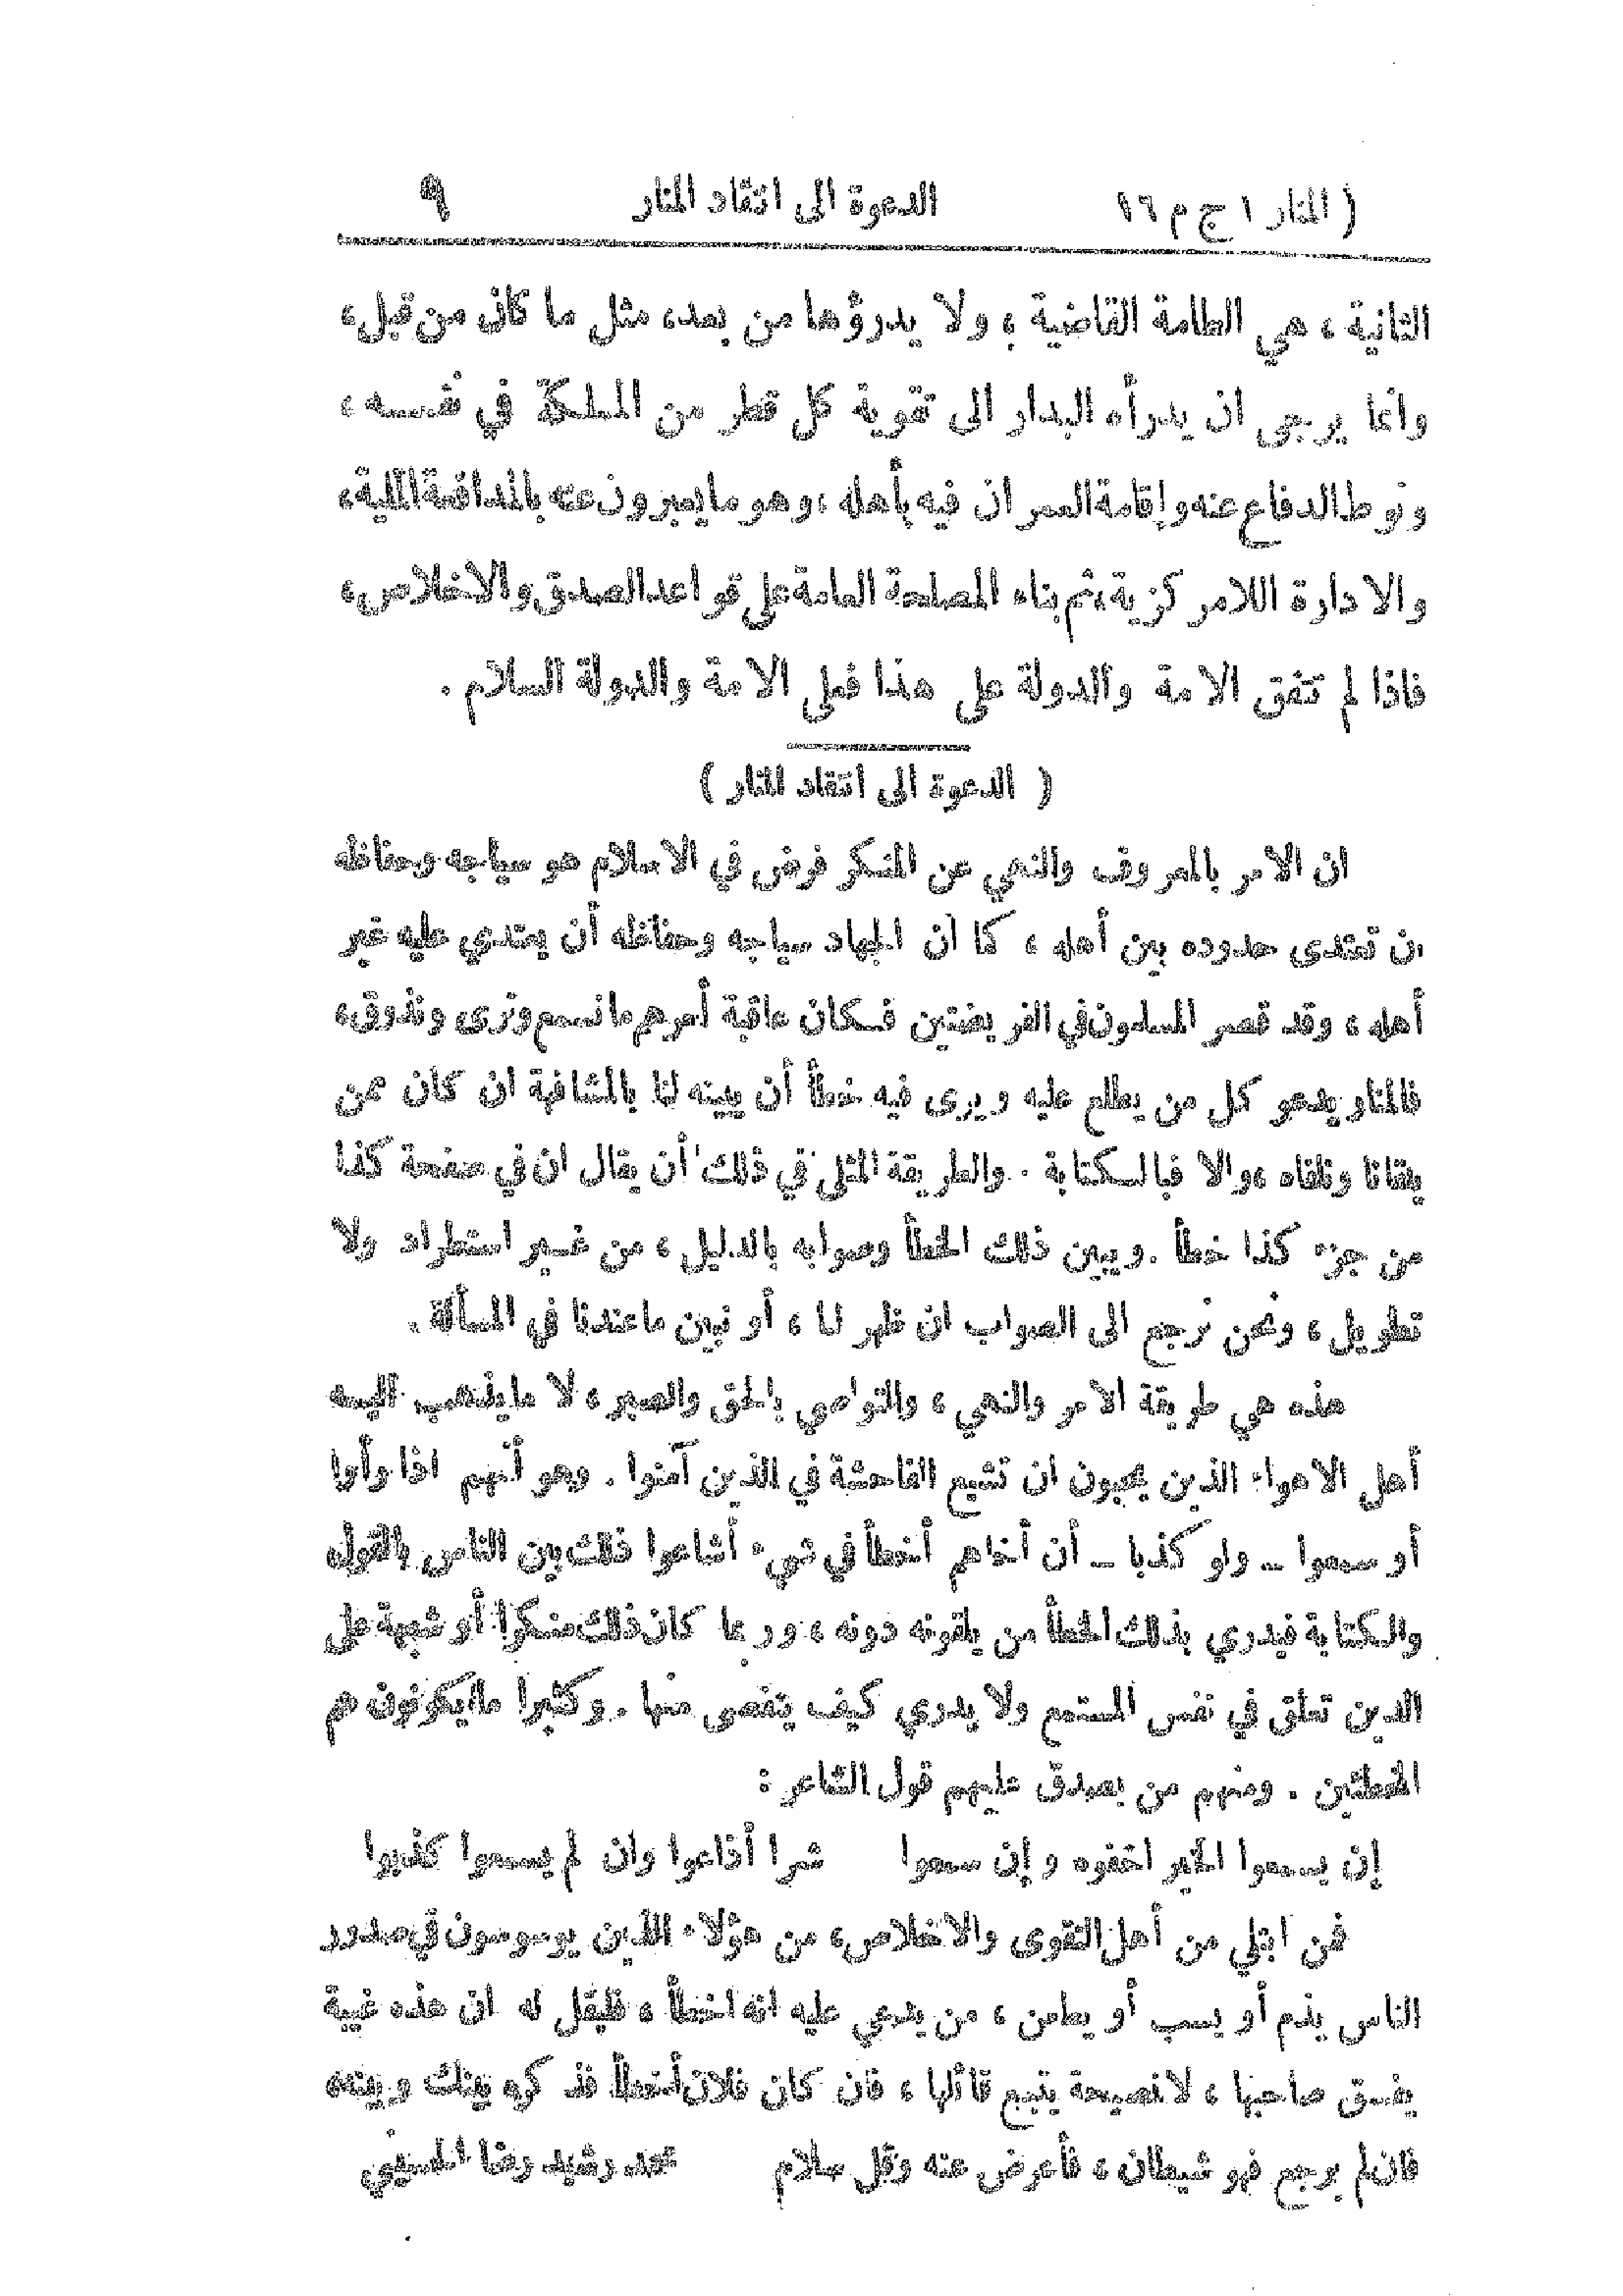 ( المنار ١ ج م ١٦ الدعوة الى انتقاد المنار ٩
الثانية ، هي الطامة القاضية ، ولا يدرؤها من بعد، مثل ما كان من قبل ،
وانما يرجى ان يدرأه البدار الى تقوية كل قطر من المملكة في نفسه ،
ونوط الدفاع عنه وإقامة العمران فيه بأهله ، وهو ما يعبرون عنه بالمدافعة الملية،
والادارة اللامركزية ، ثم بناء المصلحة العامة على قواعد الصدق والاخلاص،
فاذا لم تتفق الامة والدولة على هذا فعلى الامة والدولة السلام .
( الدعوة الى انتقاد المنار )
ان الامر بالمعروف والنهي عن المنكر فرض في الاسلام هو سياجه وحفاظه
ان تتعدى حدوده بين أهله ، كما ان الجهاد سياجه وحفاظه أن يعتدي عليه غير
أهله ، وقد قصر المسلمون في الفريضتين فكان عاقبة أمرهم ما نسمع ونرى ونذوق،
فالمنار يدعو كل من يطلع عليه ويرى فيه خطأ أن يبينه لنا بالمشافهة ان كان ممن
يلقانا ونلقاه ، والا فبالكتابة . والطريقة المثلى في ذلك أن يقال ان في صفحة كذا
من جزء كذا خطأ . ويبين ذلك الخطأ وصوابه بالدليل ، من غير استطراد ولا
تطويل ، ونحن نرجع الى الصواب ان ظهر لنا ، أو نبين ما عندنا في المسألة .
هذه هي طريقة الامر والنهي ، والتواصي بالحق والصبر ، لا ما يذهب اليه
أهل الاهواء الذين يحبون ان تشيع الفاحشة في الذين آمنوا . وهو أنهم اذا رأوا
أو سمعوا ــ ولو كذبا ــ أن أخاهم أخطأ في شيء أشاعوا ذلك بين الناس بالقول
والكتابة فيدري بذلك الخطأ من يلقونه دونه ، وربما كان ذلك منكرا أو شبهة على
الدين تعلق في نفس المستمع ولا يدري كيف يتفصى منها . وكثيرا ما يكونون هم
المخطئين . ومنهم من يصدق عليهم قول الشاعر :
إن يسمعوا الخير اخفوه وإن سمعوا شرا أذاعوا وان لم يسمعوا كذبوا
فمن ابتلي من أهل التقوى والاخلاص، من هؤلاء الذين يوسوسون في صدور
الناس بذم أو بسب أو بطعن ، من يدعي عليه انه اخطأ ، فليقل له ان هذه غيبة
يفسق صاحبها ، لا نصيحة يتبع قائلها ، فان كان فلان أخطأ فذكره بينك وبينه،
فان لم يرجع فهو شيطان ، فأعرض عنه وقل سلام محمد رشيد رضا الحسيني